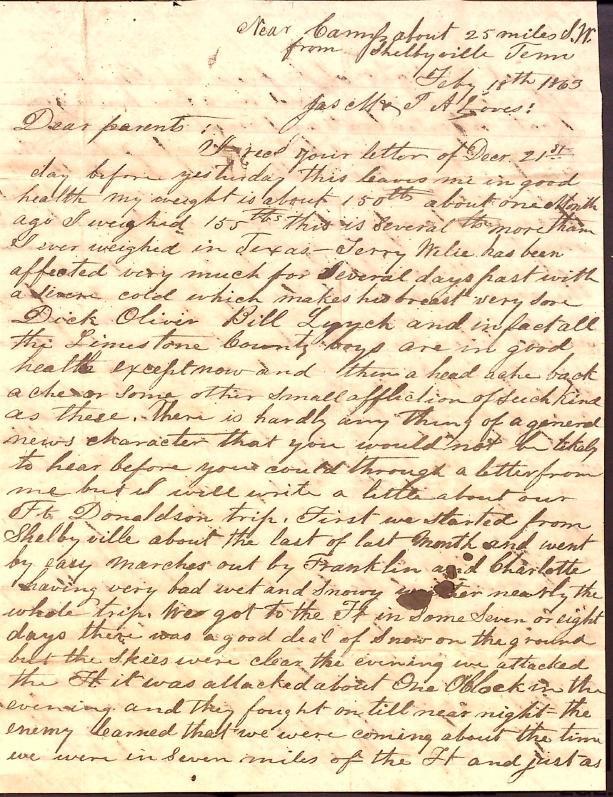 Near Camp about 25 miles S.W.
from Shelbyville Tenn
Feby 18th 1863
Jas M & T A Loves:
Dear parents:
I recd your letter of Decr. 21st
day before yesterday This leaves me in good
health my weight is about 150 lbs about one Month
ago I weighed 155 lbs this is several lbs more than
I ever weighed in Texas - Terry Wilie has been
affected very much for Several days past with
a severe cold which makes his breast very sore
Dick Oliver Bill Lynch and in fact all
the Limestone County boys are in good
health except now and then a head ache back
ache or some other small affliction of such kind
as these. There is hardly any thing of a general
news character that you would not be likely
to hear before you could through a letter from
me but I will write a little about our
Ft. Donaldson trip. First we started from
Shelbyville about the last of last Month and went
by easy marches out by Franklin and Charlotte
having very bad wet and snowy nearly the
whole trip. We got to the Ft in some Seven or eight
days there was a good deal of Snow on the ground
but the skies were clear the evening we attacked
the Ft it was attacked about One Oclock in the
evening and they fought on till near night - the
enemy learned that we were coming about the time
we were in Seven miles of the Ft and just as